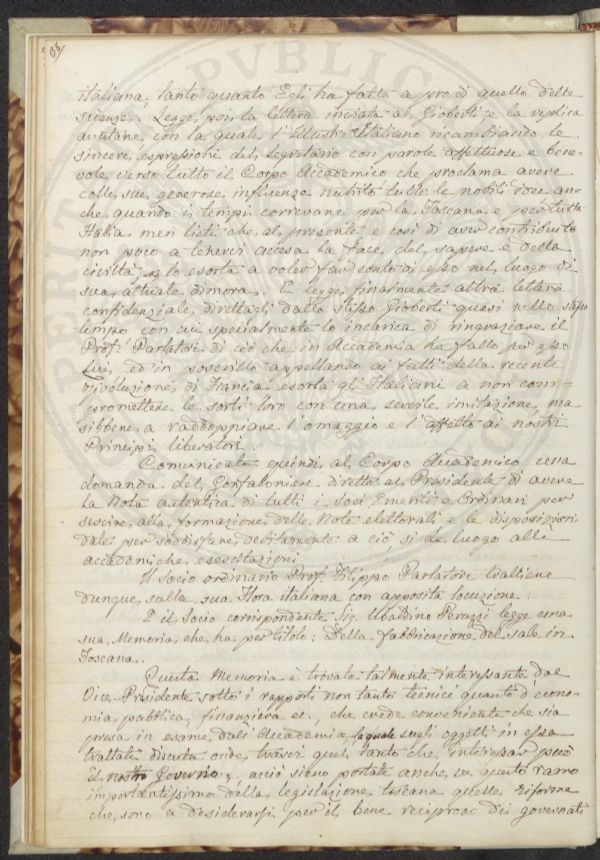 138/
italiana, tanto quanto Egli ha fatta a pro di quello delle
scienze. Legge, poi la lettera inviata al Gioberti e la replica
avutane, con la quale l'illustre Italiano ricambiando le
sincere espressioni del Segretario con parole affettuose e bene-
vole verso tutto il Corpo Accademico che proclama avere
colle sue generose influenze nutrito tutte le nobili idee an-
che quando i tempi correvano per la Toscana e per tutta
Italia men lieti che al presente, e così di aver contribuito
non poco a tenervi accesa la face del sapere e della
civiltà, lo esorta a voler far conto di esso nel luogo di
sua attuale dimora. E legge finalmente altra lettera
confidenziale, direttagli dallo stesso Gioberti quasi nello stesso
tempo con cui specialmente lo incarica di ringraziare il
Prof. Parlatore di ciò che in Accademia ha fatto per esso
Lui, ed in poscritto appellando ai fatti della recente
rivoluzione di Francia esorta gl'Italiani a non com-
promettere le sorti loro con una servile imitazione, ma
sibbene a raddoppiare l'omaggio e l'affetto ai nostri
Principi liberatori.
Comunicata quindi al Corpo Accademico una
domanda del Gonfaloniere diretta al Presidente di avere
la Nota autentica di tutti i Soci Emeriti e Ordinari per
servire alla formazione delle Note elettorali e le disposizioni
date per soddisfare debitamente a ciò, si dà luogo alle
accademiche esercitazioni.
Il socio ordinario Prof. Filippo Parlatore trattiene
dunque sulla sua Flora italiana con apposita locuzione.
E il Socio corrispondente Sig. Ubaldino Peruzzi legge una
sua Memoria che ha per titolo: Della fabbricazione del sale in
Toscana.
Questa Memoria è trovata talmente interessante dal
Vice Presidente sotto i rapporti non tanto tecnici quanto d'econo-
mia pubblica, finanziera ec., che crede conveniente che sia
presa in esame dall'Accademia, la quale sugli oggetti in essa
trattati discuta onde trarvi quel tanto che interessar può
il nostro Governo, acciò siano portate anche in questo ramo
importantissimo della legislazione toscana quelle riforme
che sono a desiderarsi per il bene reciproco dei governati